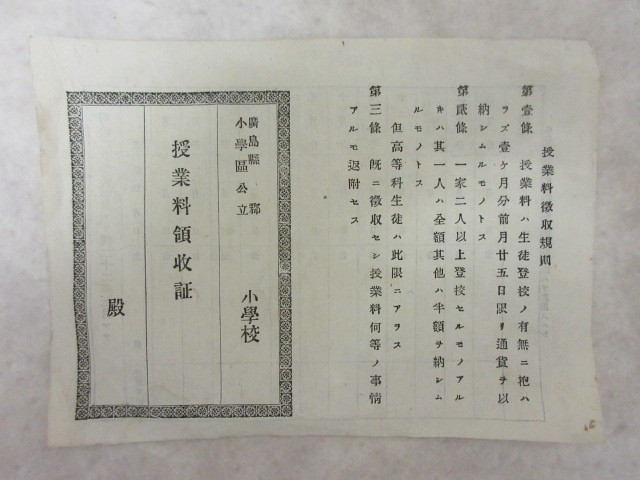 授業料徴収規則
第壹條 授業料ハ生徒登校ノ有無ニ抱ハ
ラズ壹ケ月分前月廿五日限リ通貨ヲ以
納シムルモノトス
第貳條 一家二人以上登校セルモノアル
キハ其一人ハ全額其他ハ半額ヲ納シム
ルモノトス
但高等科生徒ハ此限ニアラス
第三條 既ニ徴収セシ授業料何等ノ事情
アルモ返附セス
廣島縣 郡
小學區公立 小學校
授業料領收証
殿